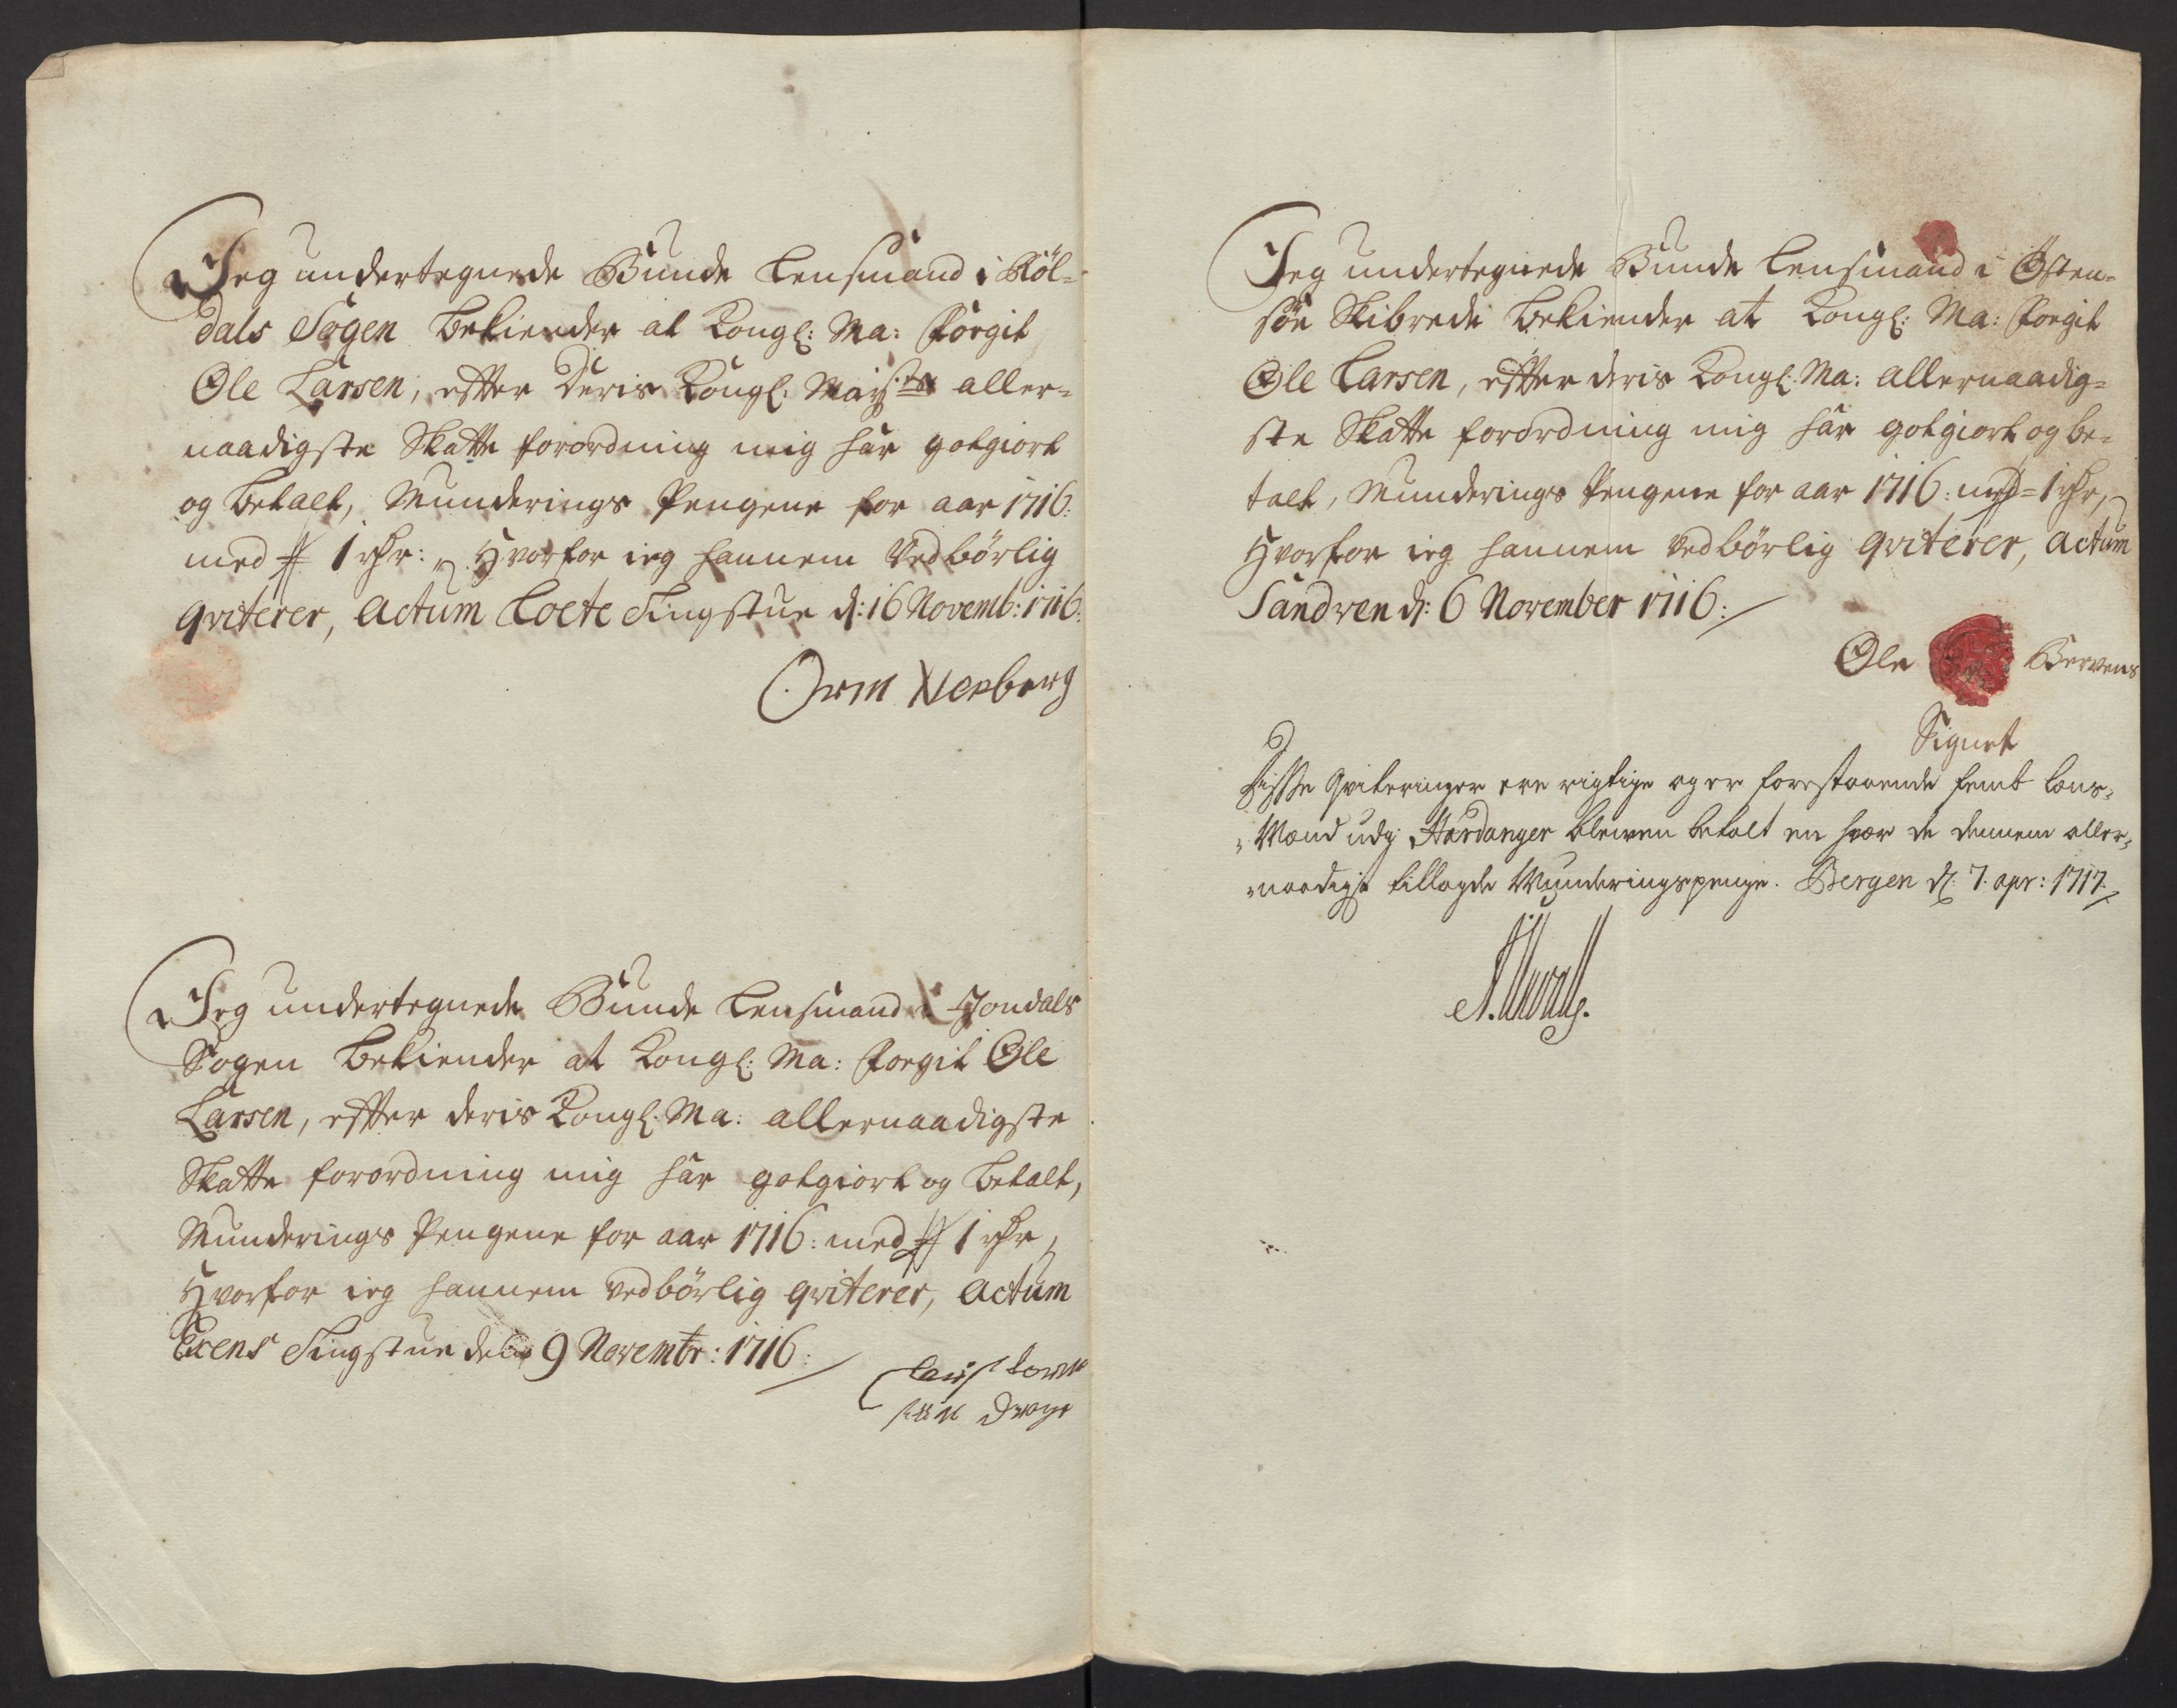 Jeg undertegnede Bunde Lensmand i Röl-
dals Sogen bekiender at Kongl: Ma: Forgit
Ole Larsen, effter Deris Kongl: Mayts aller-
naadigste Skatte forordning mig har gotgiort
og betalt, Munderings Pengene for aar 1716:
med # 1 rdr: Hvorfor ieg hannem Vedbörlig
qviterer, Actum Loete Tingstue d: 16 Novemb: 1716.
Orm
Jeg undertegnede Bunde Lensmand i Jondals
Sogen bekiender at Kongl: Ma: Forgit Ole
Larsen, effter deris Kongl: Ma: allernaadigste
Skatte forordning mig har gotgiort og betalt,
Munderings Pengene for aar 1716: med # 1 rdr,
Hvorfor ieg hannem vedbörlig qviterer, Actum
Tingstue den 9 Novembr: 1716:
Jeg undertegnede Bunde Lensmand i Østen-
söe Skibrede bekiender at Kongl: Ma: Forgit
Ole Larsen, effter deris Kongl: Ma: allernaadig-
ste Skatte forordning mig har gotgiort og be-
talt, Munderings Pengene for aar 1716: med= 1 rdr,
Hvorfor ieg hannem vedbörlig qviterer, Actum
Sandven d: 6 November 1716:
Ole Bervens
Signet
Disse Qviteringer ere rigtige og er forestaaende femb Lens-
Mænd udj Hardanger blewen betalt en hver de dennem aller-
naadigst tillagde Munderingspenge. Bergen d: 7. apr: 1717.